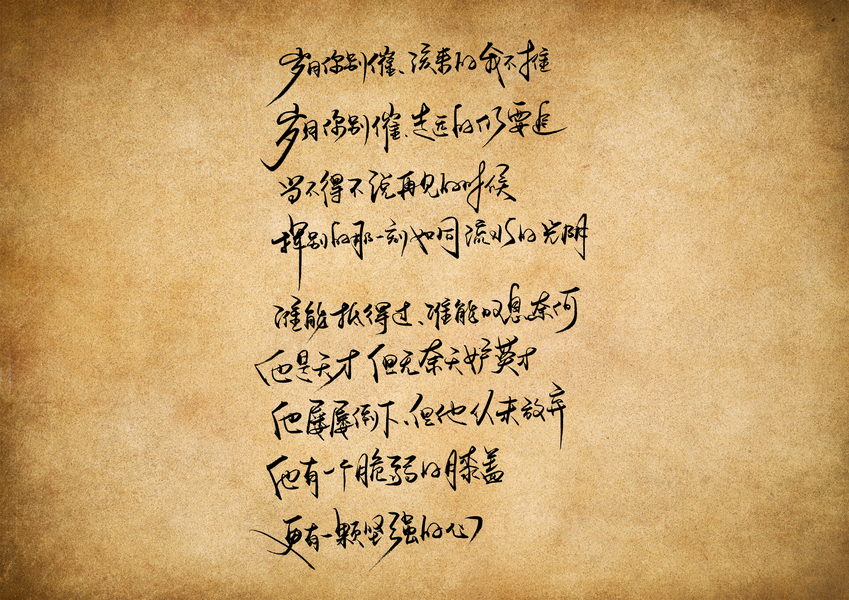 岁月你别催、该来的我不推
岁月你别催、走远的仍要追
当不得不说再见的时候
挥别的那一刻如同流水的光阴
谁能抵得过、谁能叹息奈何
他是天才但无奈天妒英才
他屡屡倒下、但他从未放弃
他有一个脆弱的膝盖
更有一颗坚强的心